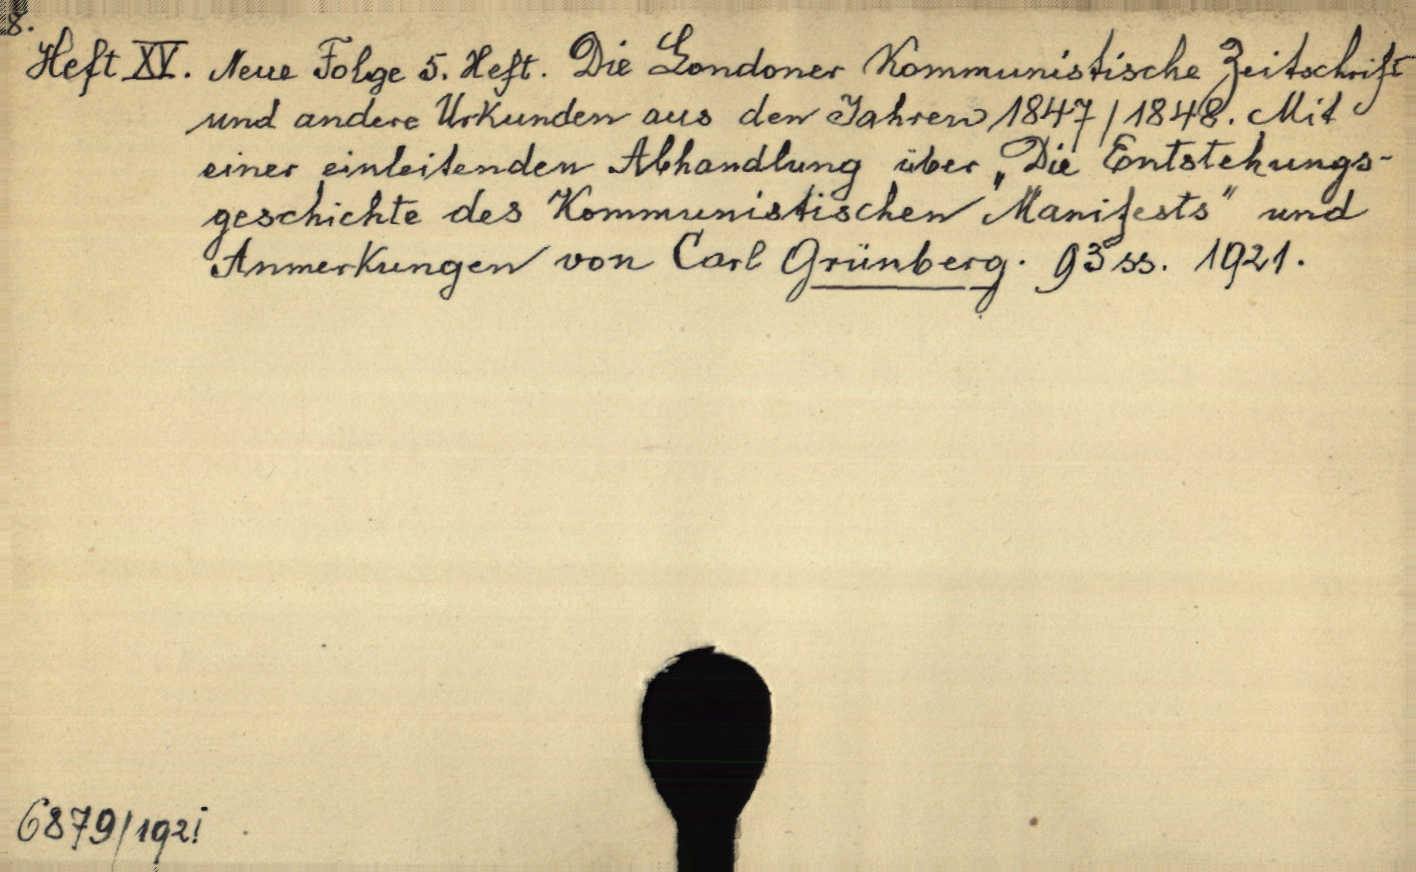 8.
Heft XV. Neue Folge 5. Heft. Die Londoner Kommunistische Zeitschrift
und andere Urkunden aus den Jahren 1847/1848. Mit
einer einleitenden Abhandlung über „Die Entstehungs-
geschichte des Kommunistischen Manifests" und
Anmerkungen von Carl Grünberg. 93 ss. 1921.
6879/1921